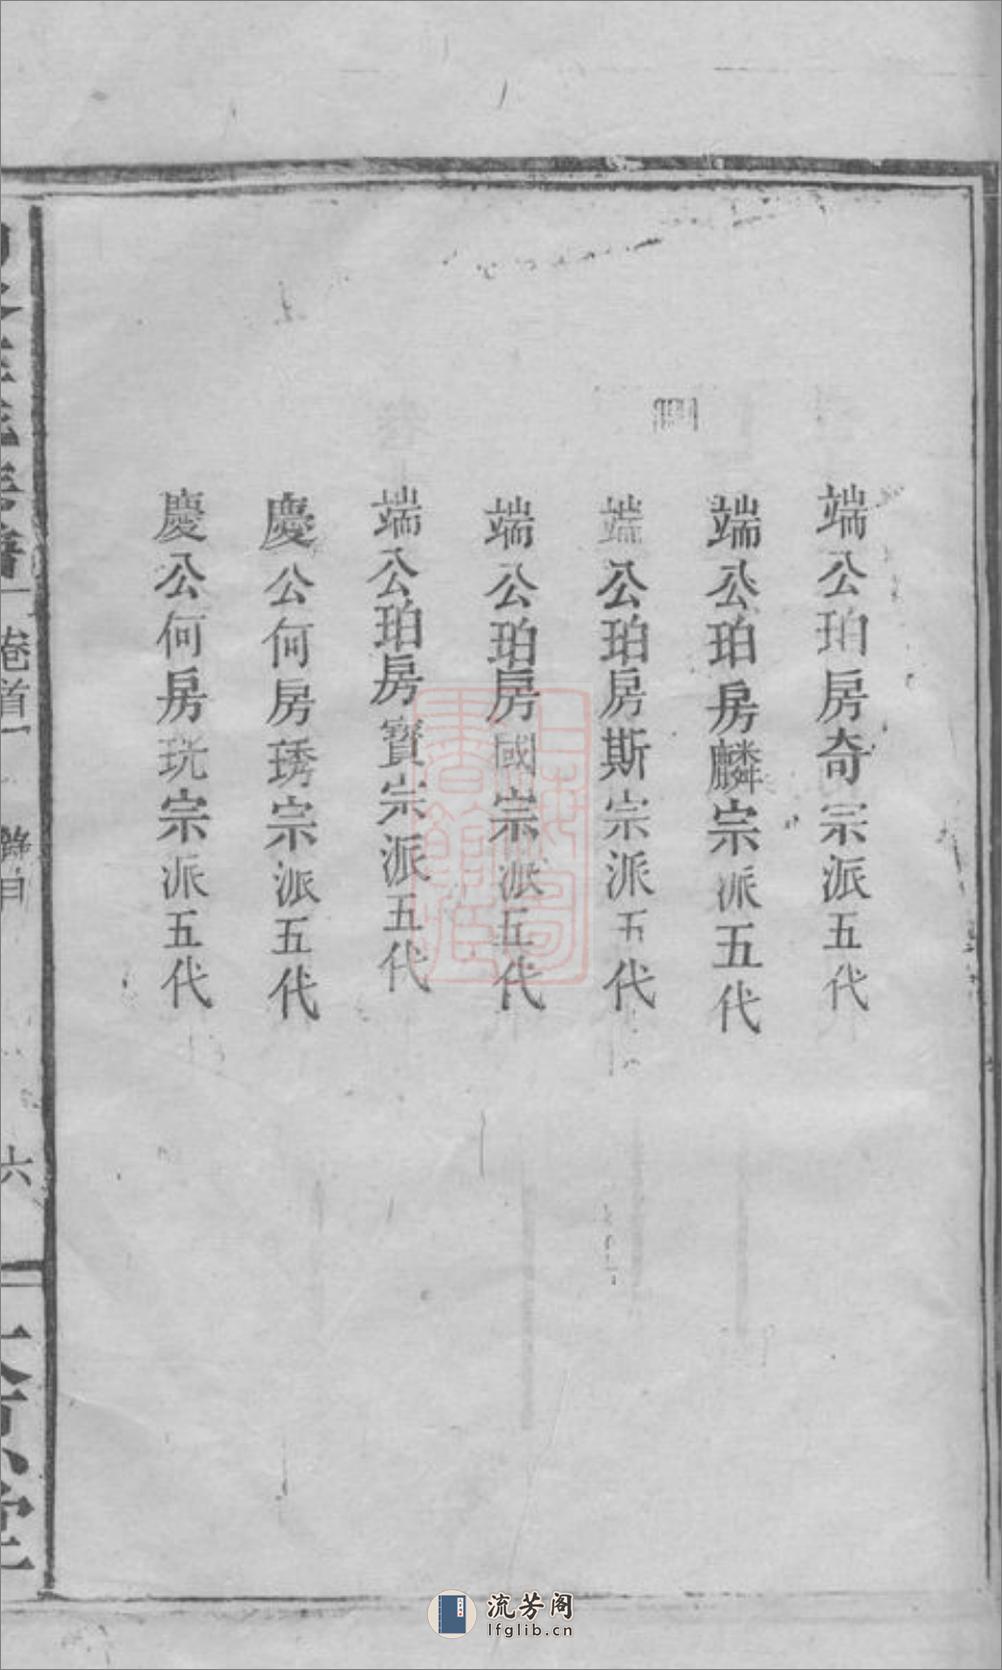 端公珀房奇宗派五代
端公珀房麟宗派五代
端公珀房斯宗派五代
端公珀房國宗派五代
端公珀房寶宗派五代
慶公何房琇宗派五代
慶公何房珖宗派五代
卷首一
六
流芳阁
lfglib.cn